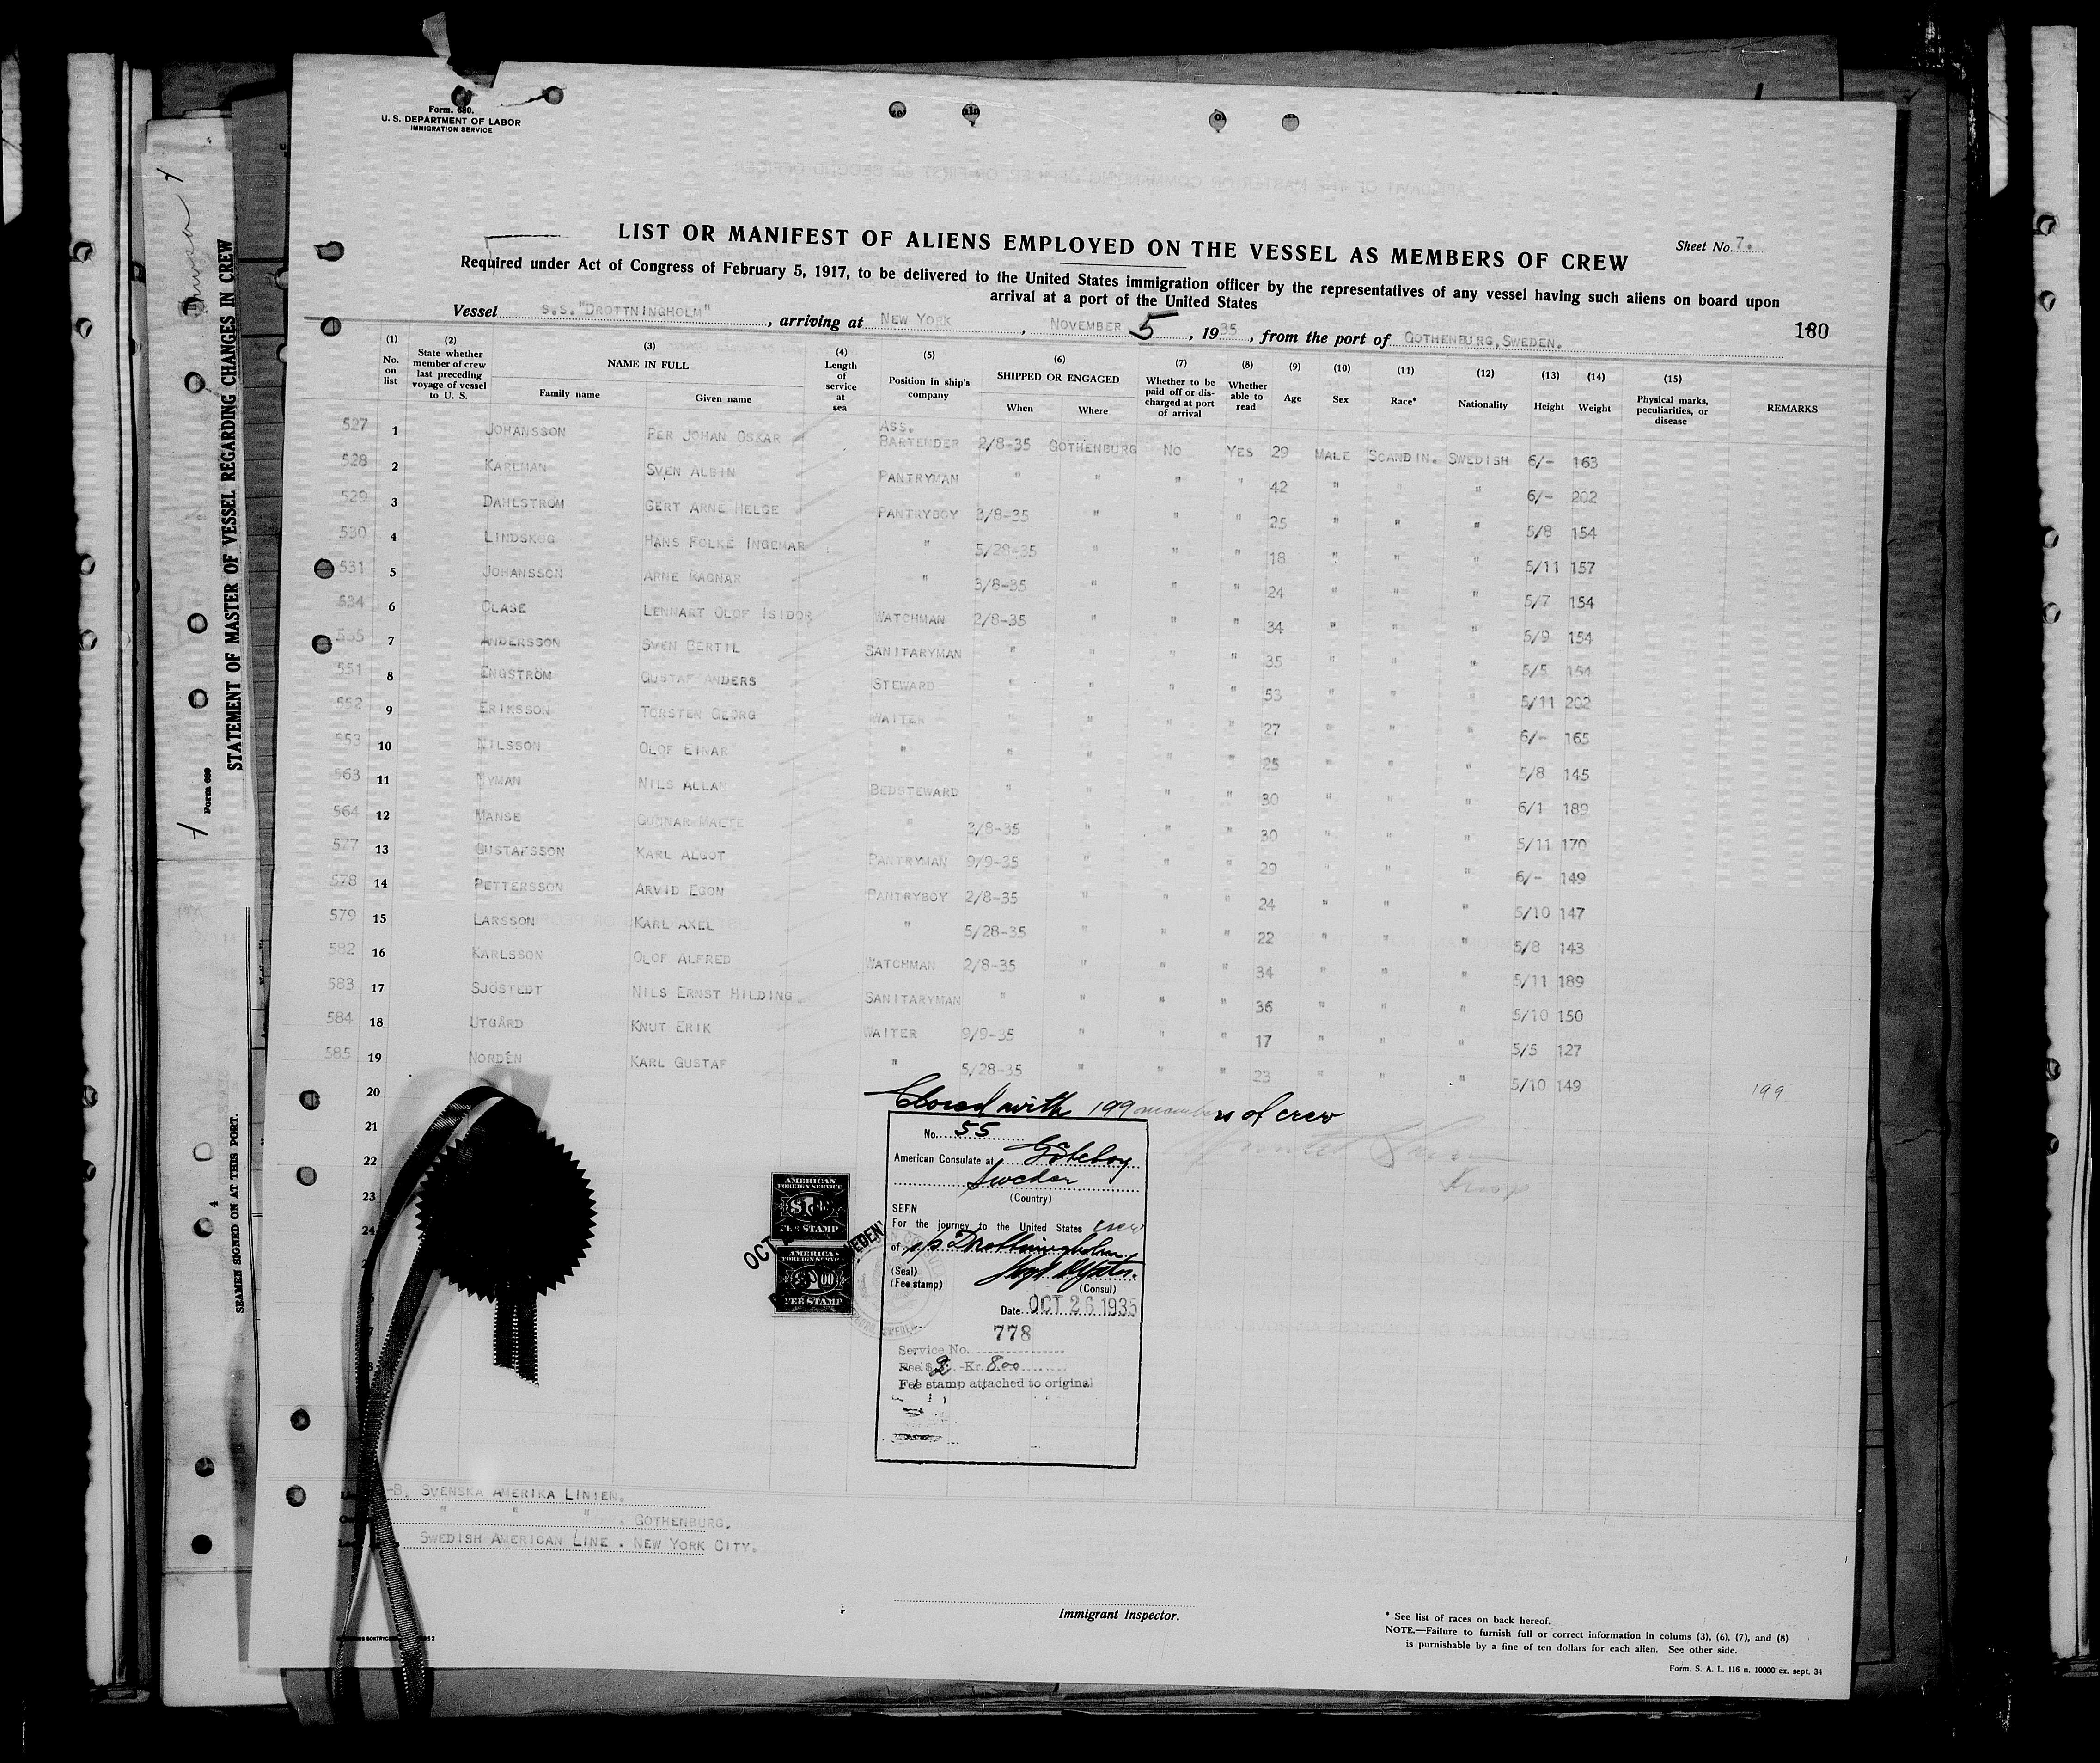 Form. 680.
U. S. DEPARTMENT OF LABOR
IMMIGRATION SERVICE
LIST OR MANIFEST OF ALIENS EMPLOYED ON THE VESSEL AS MEMBERS OF CREW
Sheet No. 7.
Required under Act of Congress of February 5, 1917, to be delivered to the United States immigration officer by the representatives of any vessel having such aliens on board upon
arrival at a port of the United States
Vessel S.S."DROTTNINGHOLM", arriving at NEW YORK, NOVEMBER 5, 1935, from the port of GOTHENBURG, SWEDEN.
180
(1) No. on list
(2) State whether member of crew last preceding voyage of vessel to U. S.
(3) NAME IN FULL Family name Given name
(4) Length of service at sea
(5) Position in ship's company
(6) SHIPPED OR ENGAGED When Where
(7) Whether to be paid off or discharged at port of arrival
(8) Whether able to read
(9) Age
(10) Sex
(11) Race*
(12) Nationality
(13) Height
(14) Weight
(15) Physical marks, peculiarities, or disease
REMARKS
527 1 JOHANSSON PER JOHAN OSKAR ASS. BARTENDER 2/8-35 GOTHENBURG NO YES 29 MALE SCANDIN. SWEDISH 6/- 163
528 2 KARLMAN SVEN ALBIN PANTRYMAN " " " " 42 " " " 6/- 202
529 3 DAHLSTRÖM GERT ARNE HELGE PANTRYBOY 3/8-35 " " " 25 " " " 5/8 154
530 4 LINDSKOG HANS FOLKE INGEMAR " 5/28-35 " " " 18 " " " 5/11 157
531 5 JOHANSSON ARNE RAGNAR " 3/8-35 " " " 24 " " " 5/7 154
534 6 CLASE LENNART OLOF ISIDOR WATCHMAN 2/8-35 " " " 34 " " " 5/9 154
535 7 ANDERSSON SVEN BERTIL SANITARYMAN " " " " 35 " " " 5/5 154
551 8 ENGSTRÖM GUSTAF ANDERS STEWARD " " " " 53 " " " 5/11 202
552 9 ERIKSSON TORSTEN GEORG WAITER " " " " 27 " " " 6/- 165
553 10 NILSSON OLOF EINAR " " " " " 25 " " " 5/8 145
563 11 NYMAN NILS ALLAN BEDSTEWARD " " " " 30 " " " 6/1 189
564 12 MANSE GUNNAR MALTE " 3/8-35 " " " 30 " " " 5/11 170
577 13 GUSTAFSSON KARL ALGOT PANTRYMAN 9/9-35 " " " 29 " " " 6/- 149
578 14 PETTERSSON ARVID EGON PANTRYBOY 2/8-35 " " " 24 " " " 5/10 147
579 15 LARSSON KARL AXEL " 5/28-35 " " " 22 " " " 5/8 143
582 16 KARLSSON OLOF ALFRED WATCHMAN 2/8-35 " " " 34 " " " 5/11 189
583 17 SJÖSTEDT NILS ERNST HILDING SANITARYMAN " " " " 36 " " " 5/10 150
584 18 UTGÅRD KNUT ERIK WAITER 9/9-35 " " " 17 " " " 5/5 127
585 19 NORDÉN KARL GUSTAF " 5/28-35 " " " 23 " " " 5/10 149
20 199
21
22
23
24
Closed with 199 members of crew
No. 55
American Consulate at Göteborg
Sweden
(Country)
SEEN
For the journey to the United States crew
of s/s Drottningholm
(Seal)
(Fee stamp)
(Consul)
Date OCT 26 1935
778
Service No.
Fee $ 2 Kr. 8.00
Fee stamp attached to original
AMERICAN
FOREIGN SERVICE
FEE STAMP
AMERICAN
FOREIGN SERVICE
FEE STAMP
OCT
-B. SVENSKA AMERIKA LINIEN.
" " " . GOTHENBURG.
SWEDISH AMERICAN LINE . NEW YORK CITY.
Immigrant Inspector.
* See list of races on back hereof.
NOTE.—Failure to furnish full or correct information in colums (3), (6), (7), and (8)
is purnishable by a fine of ten dollars for each alien. See other side.
Form. S. A. L. 116 n. 10000 ex. sept. 34
STATEMENT OF MASTER OF VESSEL REGARDING CHANGES IN CREW
Form 689
SEAMEN SIGNED ON AT THIS PORT.